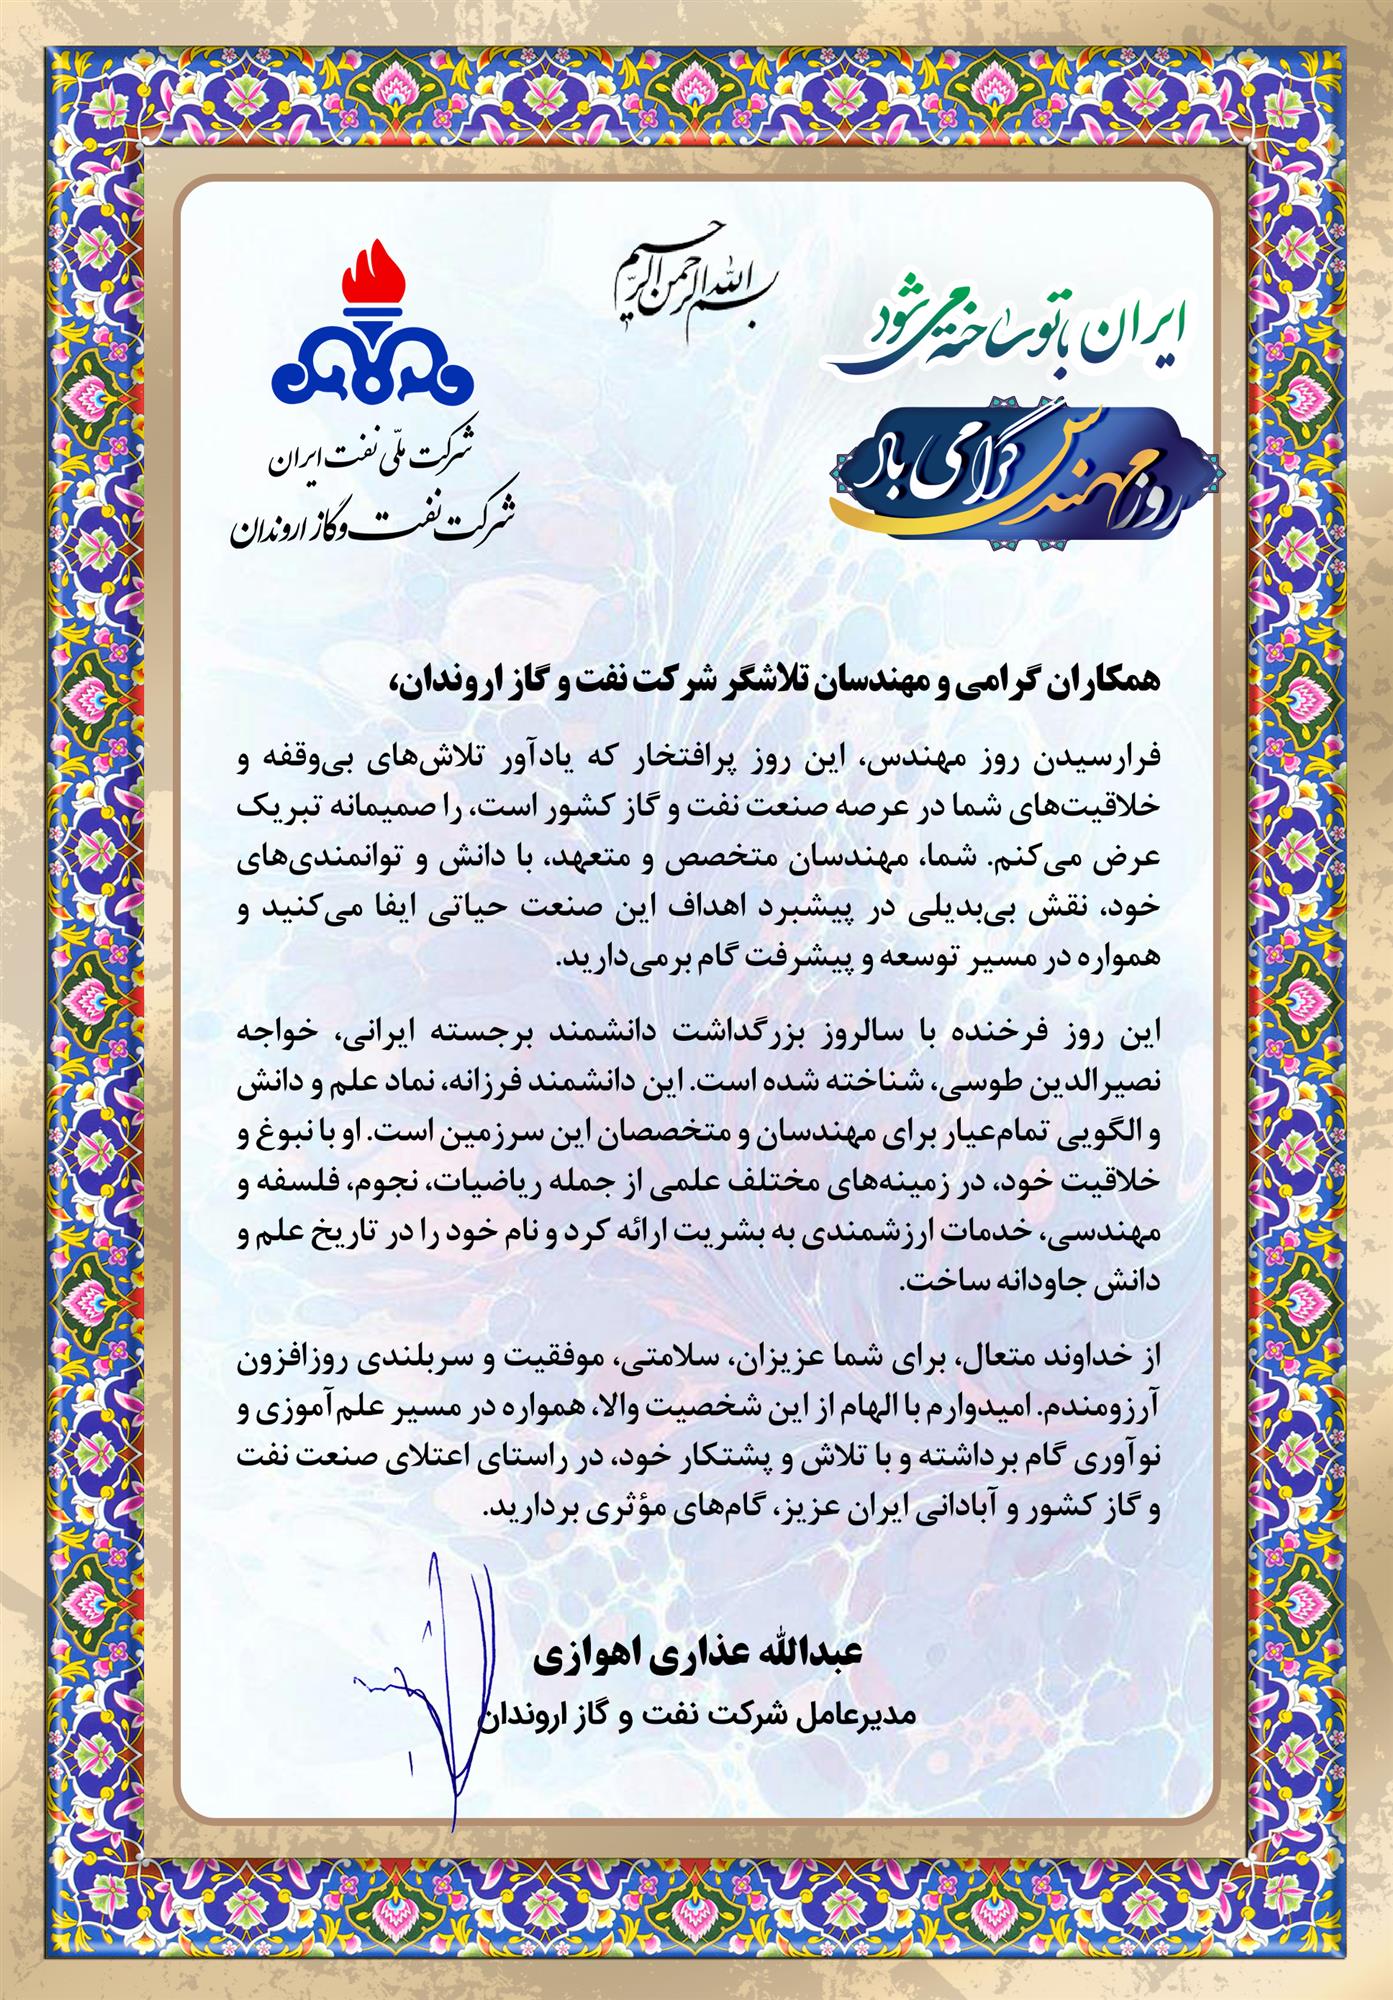 بسم الله الرحمن الرحیم
ایران با تو ساخته می‌شود
روز مهندس گرامی باد
شرکت ملّی نفت ایران
شرکت نفت و گاز اروندان
همکاران گرامی و مهندسان تلاشگر شرکت نفت و گاز اروندان،
فرارسیدن روز مهندس، این روز پرافتخار که یادآور تلاش‌های بی‌وقفه و
خلاقیت‌های شما در عرصه صنعت نفت و گاز کشور است، را صمیمانه تبریک
عرض می‌کنم. شما، مهندسان متخصص و متعهد، با دانش و توانمندی‌های
خود، نقش بی‌بدیلی در پیشبرد اهداف این صنعت حیاتی ایفا می‌کنید و
همواره در مسیر توسعه و پیشرفت گام برمی‌دارید.
این روز فرخنده با سالروز بزرگداشت دانشمند برجسته ایرانی، خواجه
نصیرالدین طوسی، شناخته شده است. این دانشمند فرزانه، نماد علم و دانش
و الگویی تمام‌عیار برای مهندسان و متخصصان این سرزمین است. او با نبوغ و
خلاقیت خود، در زمینه‌های مختلف علمی از جمله ریاضیات، نجوم، فلسفه و
مهندسی، خدمات ارزشمندی به بشریت ارائه کرد و نام خود را در تاریخ علم و
دانش جاودانه ساخت.
از خداوند متعال، برای شما عزیزان، سلامتی، موفقیت و سربلندی روزافزون
آرزومندم. امیدوارم با الهام از این شخصیت والا، همواره در مسیر علم‌آموزی و
نوآوری گام برداشته و با تلاش و پشتکار خود، در راستای اعتلای صنعت نفت
و گاز کشور و آبادانی ایران عزیز، گام‌های مؤثری بردارید.
عبدالله عذاری اهوازی
مدیرعامل شرکت نفت و گاز اروندان